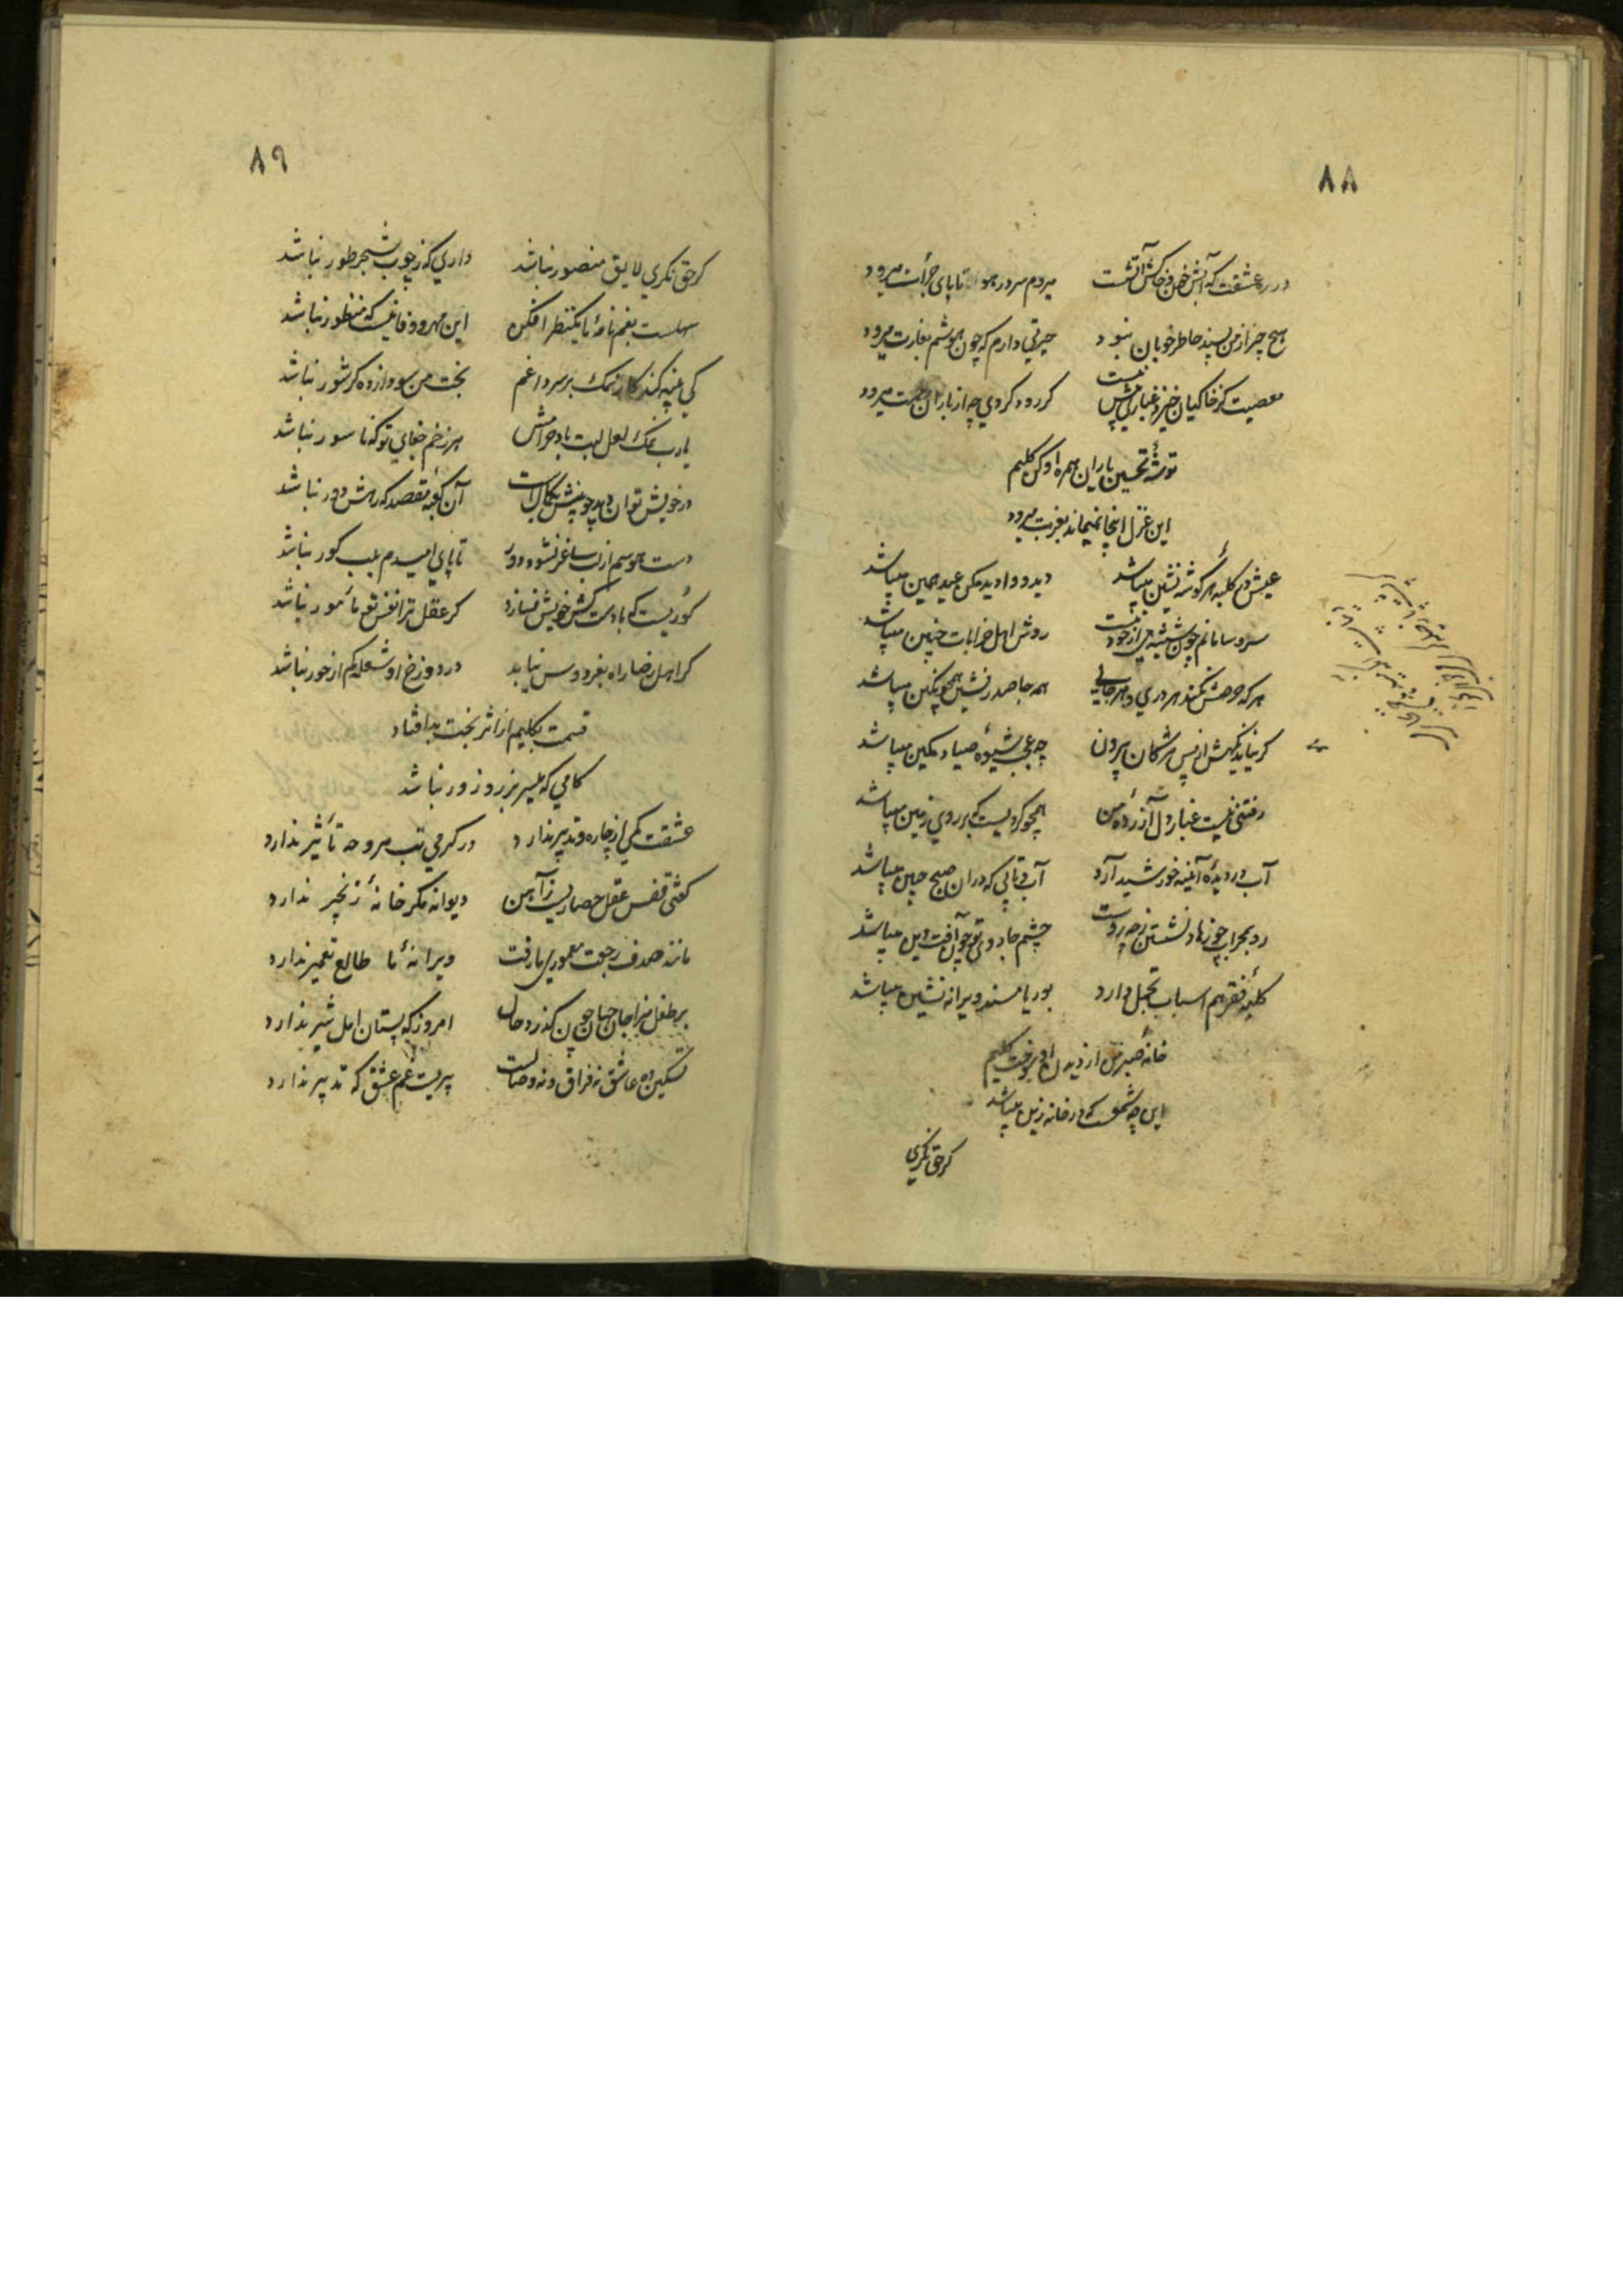 ۸۸
در ره عشقت که آتش خون و خاکش آتشست میردم سر در هوا تا پای جرأت میرود
هیچ چیز از من پسند خاطر خوبان نبود حیرتی دارم که چون هوشم بغارت میرود
معصیت کز خاکیان خیزد غباری بیش نیست گر رود گردی چه از باران رحمت میرود
توشهٔ تحسین یاران همره او کن کلیم
این غزل اینجا نمیماند بغربت میرود
عیش در کلبهٔ هر گوشه نشین میباشد دید و وادید مکن عید همین میباشد
سر و سامانم چون شیشه می از خود نیست روش اهل خرابات چنین میباشد
هر که حرصش نکند هر دری و هر جایی همه جا صدرنشین همچو نگین میباشد
گر نیاید نگهش از پس مژگان بیرون چه عجب شیوهٔ صیاد کمین میباشد
رفتنی نیست غبار دل آزردهٔ من همچو گردیست که بر روی زمین میباشد
آب در دیدهٔ آئینه خورشید آرد آب و تابی که در ان صبح جبین میباشد
رو بمحراب چو زهاد نشستن ز چه روست چشم جادوی تو چون آفت دین میباشد
کلبهٔ فقر هم اسباب تجمل دارد بوریا مسند ویرانه نشین میباشد
خانهٔ صبر من از دیدن او سوخت کلیم
این چه شمعست که در خانه زین میباشد
گر حق نگری
۸۹
گر حق نگری لایق منصور نباشد داری که ز چوب شجر طور نباشد
سهلست بغمنامهٔ ما یکنظر افکن این مهر و وفا نیست که منظور نباشد
کی پنبه کند کار نمک بر سر داغم بخت من سودازده گر شور نباشد
یارب نمک لعل لبت باد حرامش هر زخم جفای تو که ناسور نباشد
در خویش توان دید چو بینش بکمال است آن کعبهٔ مقصد که رهش دور نباشد
دست هوسم از لب ساغر نشود دور تا پای امیدم بلب گور نباشد
کوریست که با دست کش خویش نسازد گر عقل ترا نفس تو مأمور نباشد
گر اهل رضا راه بفردوس نیابد در دوزخ او شعله کم از حور نباشد
قسمت بکلیم از اثر بخت بد افتاد
کامی که میسر بزر و زور نباشد
عشقت کمی از چاره و تدبیر ندارد در گرمی تب مروحه تأثیر ندارد
گفتی قفس عقل حصاریست ز آهن دیوانه مگر خانهٔ زنجیر ندارد
مانند صدف رجعت معموری ما رفت ویرانهٔ ما طالع تعمیر ندارد
بر طفل مزاجان جهان چون گذرد حال امروز که پستان امل شیر ندارد
تسکین ده عاشق نه فراق و نه وصالست پیریست غم عشق که تدبیر ندارد